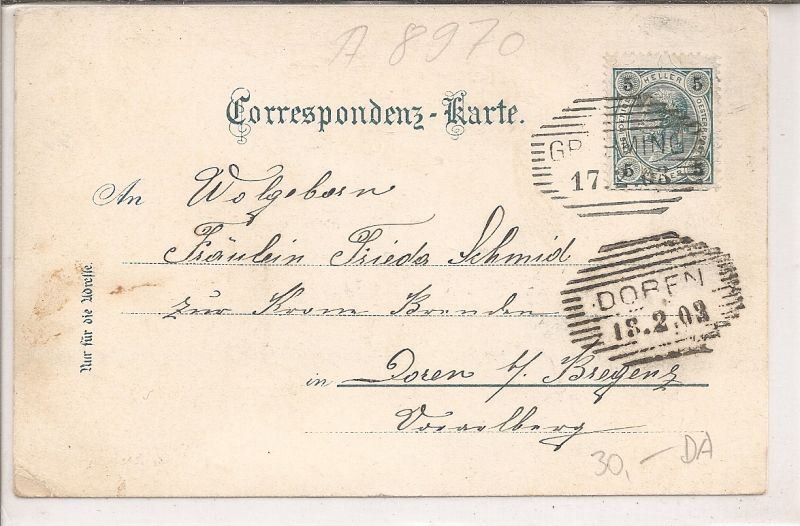 A 8970
5 HELLER 5
Correspondenz-Karte.
17.
5 5
An Wolgeborn
Fräulein Frieda Schmid
zur Krone Brenden
in Doren b/ Bregenz
Vorarlberg
Nur für die Adresse.
DOREN
13.2.03
30,- DA